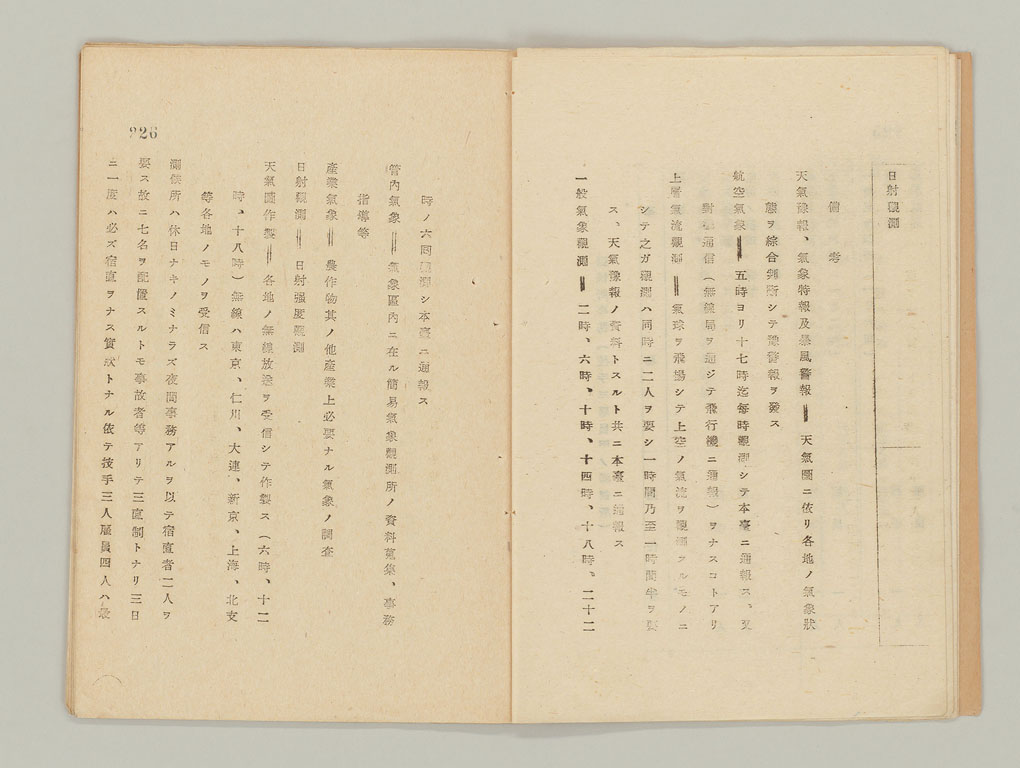 日射觀測
備考
天氣豫報、氣象特報及暴風警報＝天氣圖ニ依リ各地ノ氣象狀
態ヲ綜合判斷シテ豫警報ヲ發ス
航空氣象＝五時ヨリ十七時迄每時觀測シテ本臺ニ通報ス、又
對空通信（無線局ヲ通ジテ飛行機ニ通報）ヲナスコトアリ
上層氣流觀測＝氣球ヲ飛揚シテ上空ノ氣流ヲ觀測スルモノニ
シテ之ガ觀測ハ同時ニ二人ヲ要シ一時間乃至一時間半ヲ要
ス、天氣豫報ノ資料トスルト共ニ本臺ニ通報ス
一般氣象觀測＝二時、六時、十時、十四時、十八時、二十二
時ノ六回觀測シ本臺ニ通報ス
管內氣象＝氣象區內ニ在ル簡易氣象觀測所ノ資料蒐集、事務
指導等
產業氣象＝農作物其ノ他產業上必要ナル氣象ノ調查
日射觀測＝日射强度觀測
天氣圖作製＝各地ノ無線放送ヲ受信シテ作製ス（六時、十二
時、十八時）無線ハ東京、仁川、大連、新京、上海、北支
等各地ノモノヲ受信ス
測候所ハ休日ナキノミナラズ夜間事務アルヲ以テ宿直者二人ヲ
要ス故ニ七名ヲ配置スルトモ事故者等アリテ三直制トナリ三日
ニ一度ハ必ズ宿直ヲナス實狀トナル依テ技手三人雇員四人ハ最
226